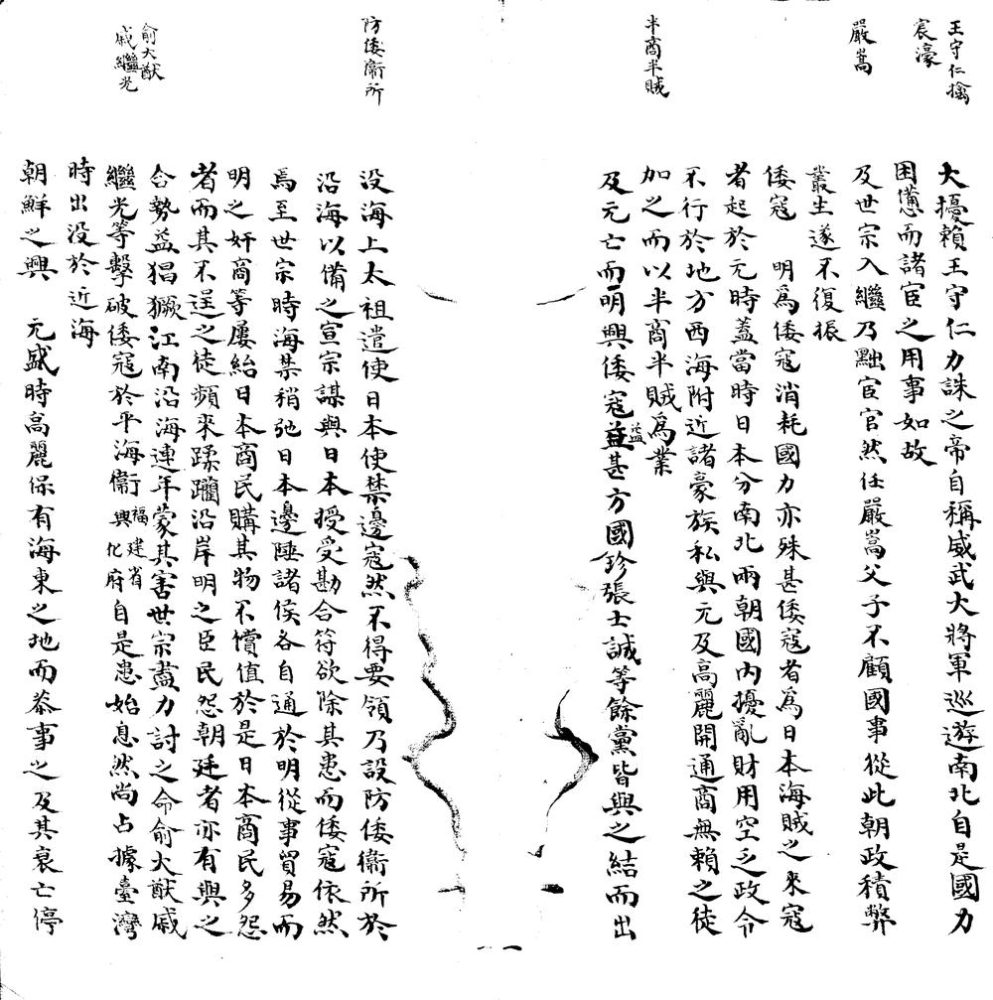 王守仁擒
宸濠
嚴嵩
半商半賊
大擾賴王守仁力誅之帝自稱威武大將軍巡遊南北自是國力
困憊而諸宦之用事如故
及世宗入繼乃黜宦官然任嚴嵩父子不顧國事從此朝政積弊
叢生遂不復振
倭寇 明爲倭寇消耗國力亦殊甚倭寇者爲日本海賊之來寇
者起於元時蓋當時日本分南北兩朝國內擾亂財用空乏政令
不行於地方西海附近諸豪族私與元及高麗開通商無賴之徒
加之而以半商半賊爲業
及元亡而明興倭寇益甚方國珍張士誠等餘黨皆與之結而出
益
防倭衞所
俞大猷
戚繼光
没海上太祖遣使日本使禁邊寇然不得要領乃設防倭衞所於
沿海以備之宣宗謀與日本授受勘合符欲除其患而倭寇依然
焉至世宗時海禁稍弛日本邊陲諸侯各自通於明從事貿易而
明之奸商等屢紿日本商民購其物不償值於是日本商民多怨
者而其不逞之徒頻來蹂躪沿岸明之臣民怨朝廷者亦有與之
合勢益猖獗江南沿海連年蒙其害世宗盡力討之命俞大猷戚
繼光等擊破倭寇於平海衞福建省興化府自是患始息然尚占據臺灣
時出没於近海
朝鮮之興 元盛時高麗保有海東之地而恭事之及其衰亡停